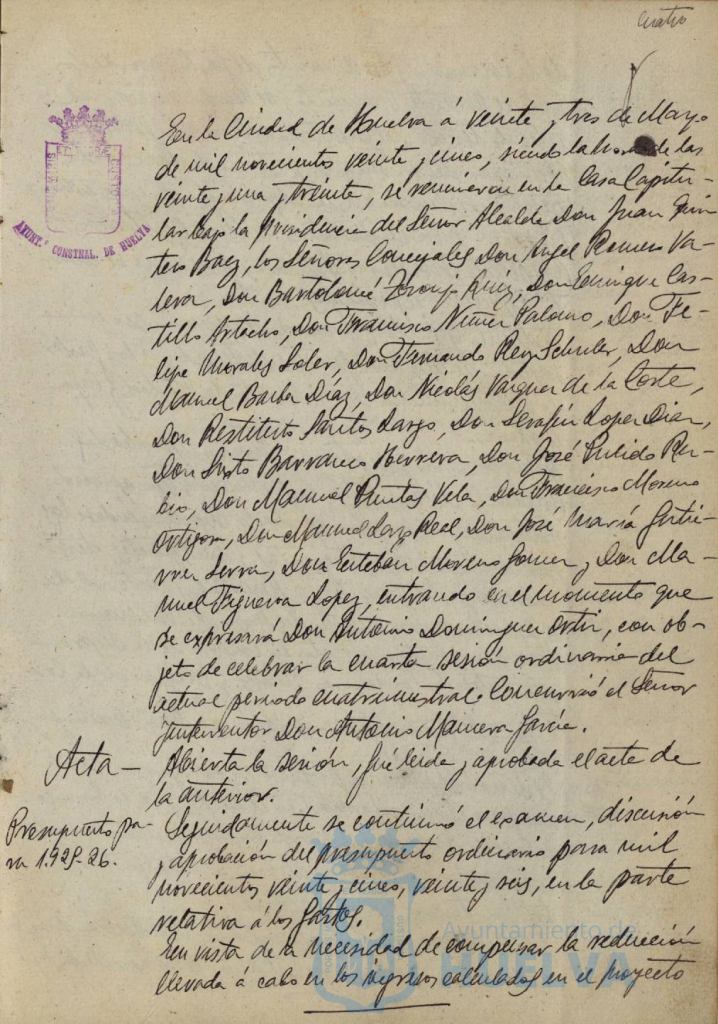 cuatro
AYUNT.º CONSTNAL. DE HUELVA
En la Ciudad de Huelva á veinte y tres de Mayo
de mil novecientos veinte y cinco, siendo la hora de las
veinte y una y treinta, se reunieron en la Casa Capitu-
lar bajo la Presidencia del Señor Alcalde Don Juan
Baez, los Señores Concejales Don Angel Romero Va-
Don Bartolomé Ruiz, Don Enrique Cas-
tillo Artacho, Don Francisco Núñez Palomo, Don Fe-
lipe Morales Soler, Don Fernando Rey Don
Manuel Barba Díaz, Don Nicolás Vazquez de la Corte,
Don Restituto Santos Largo, Don Serafín Lopez Diaz,
Don Sixto Barranco Herrera, Don José Pulido Ru-
bio, Don Manuel Puntas Vela, Don Francisco Moreno
Ortigosa, Don Manuel Real, Don José María Gutié-
rrez Serra, Don Esteban Moreno Gomez y Don Ma-
nuel Figueroa Lopez, entrando en el momento que
se expresará Don Antonio Dominguez Ortiz, con ob-
jeto de celebrar la cuarta sesión ordinaria del
actual periodo cuatrimestral. Concurrió el Señor
Interventor Don Antonio García.
Acta — Abierta la sesión, fué leida y aprobada el acta de
la anterior.
Presupuesto pa-
ra 1.925-26.
Seguidamente se continuó el examen, discusión
y aprobación del presupuesto ordinario para mil
novecientos veinte y cinco, veinte y seis, en la parte
relativa á los gastos.
En vista de la necesidad de compensar la reducción
llevada á cabo en los ingresos calculados en el proyecto
Ayuntamiento de
HUELVA